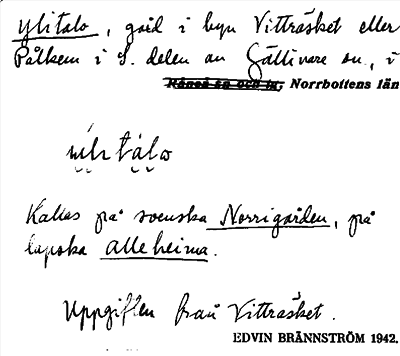 Ylitalo, gård i byn Vitträsket eller
Pålkem i S. delen av Gällivare sn, i
Råneå sn och tg, Norrbottens län
Kallas på svenska Norrigården, på
lapska alleheima.
Uppgiften från Vitträsket.
EDVIN BRÄNNSTRÖM 1942.